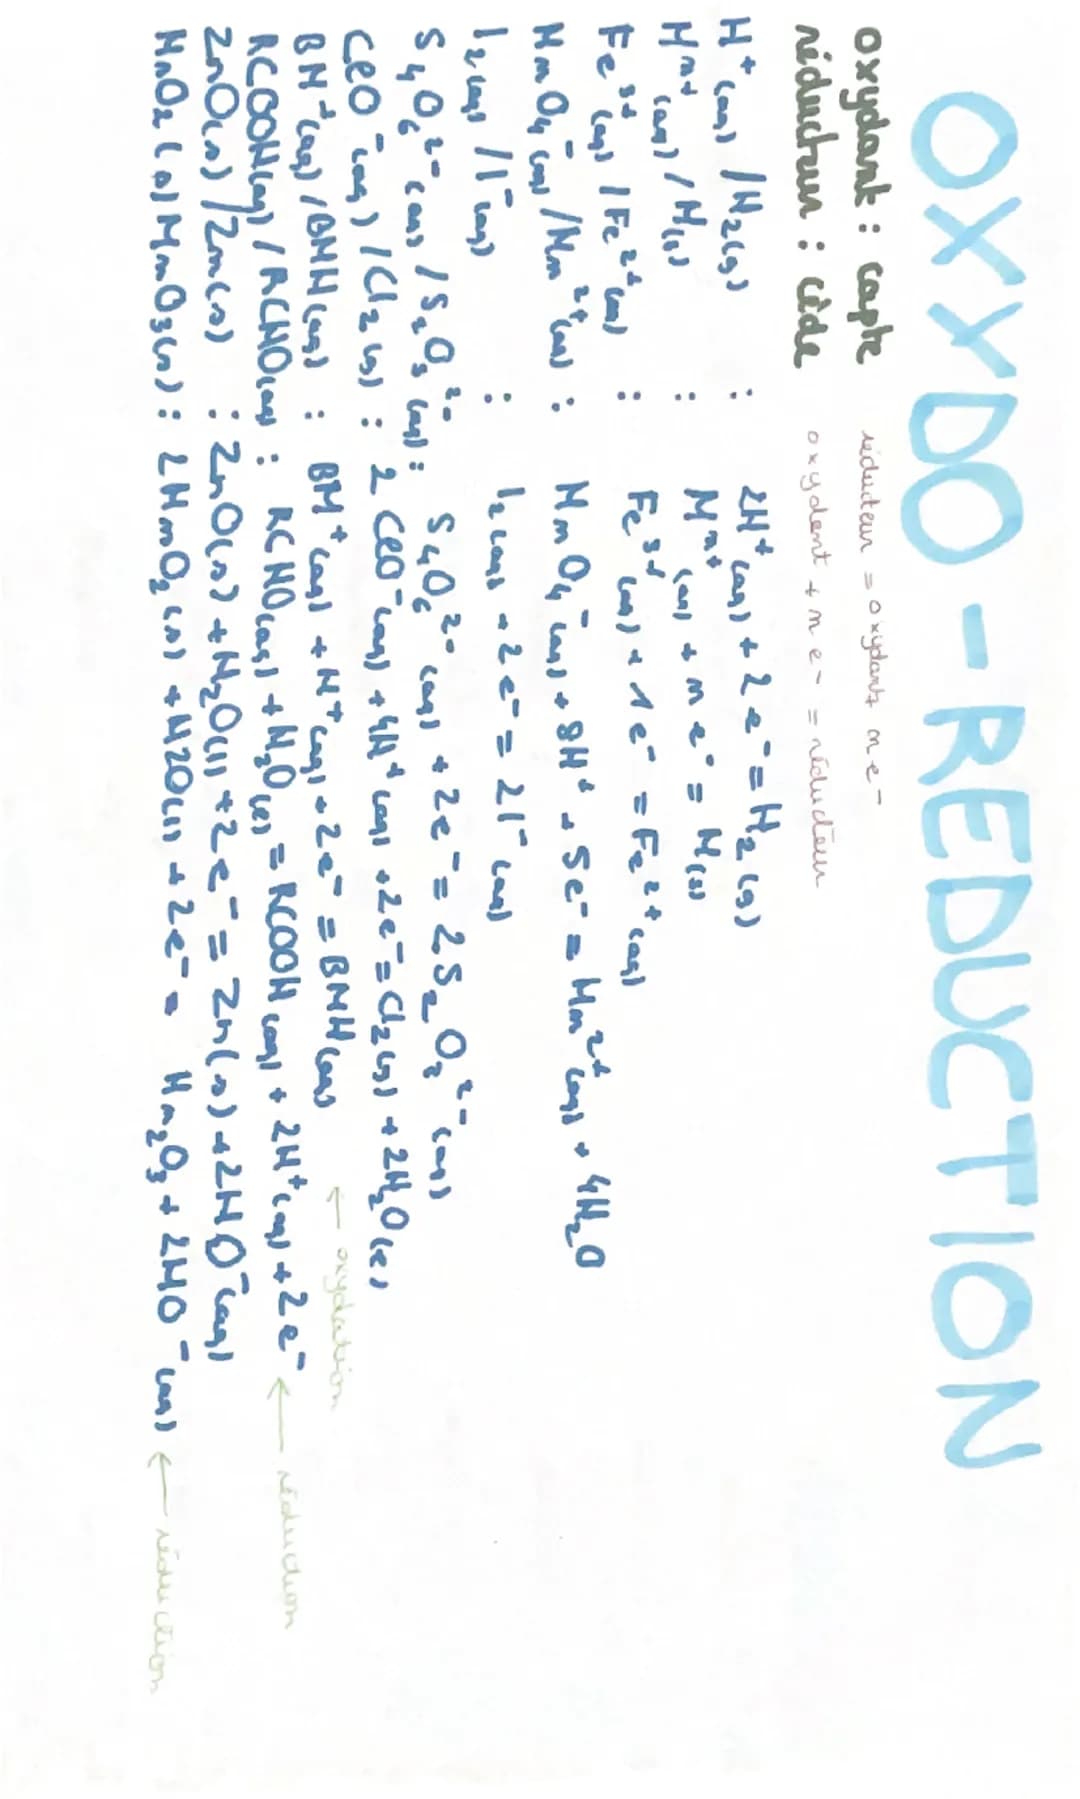 OXYDO-REDUCTION
oxydant : capte
réducteur : cède
réducteur = oxydant + n e⁻
oxydent + n e⁻ = réducteur
H⁺(aq) /H₂(g) : 2H⁺(aq) + 2e⁻ = H₂(g)
Mⁿ⁺(aq) / M(s) : Mⁿ⁺(aq) + n e⁻ = M(s)
Fe³⁺(aq) / Fe²⁺(aq) : Fe³⁺(aq) + 1e⁻ = Fe²⁺(aq)
MnO₄⁻(aq) /Mn²⁺(aq) : MnO₄⁻(aq) + 8H⁺ + 5e⁻ = Mn²⁺(aq) + 4H₂O
I₂(aq) / I⁻(aq) : I₂(aq) + 2e⁻ = 2I⁻(aq)
S₄O₆²⁻(aq) / S₂O₃²⁻(aq) : S₄O₆²⁻(aq) + 2e⁻ = 2S₂O₃²⁻(aq)
ClO⁻(aq) / Cl₂(g) : 2 ClO⁻(aq) + 4H⁺(aq) + 2e⁻ = Cl₂(g) + 2H₂O(l)
BM⁺(aq) / BMH(aq) : BM⁺(aq) + H⁺(aq) + 2e⁻ = BMH(aq) ← oxydation
RCOOH(aq) / RCHO(aq) : RCHO(aq) + H₂O(l) = RCOOH(aq) + 2H⁺(aq) + 2e⁻ ← réduction
ZnO(s) / Zn(s) : ZnO(s) + H₂O(l) + 2e⁻ = Zn(s) + 2HO⁻(aq)
MnO₂(s) Mn₂O₃(s) : 2MnO₂(s) + H2O(l) + 2e⁻ = Mn₂O₃ + 2HO⁻(aq) ← réduction